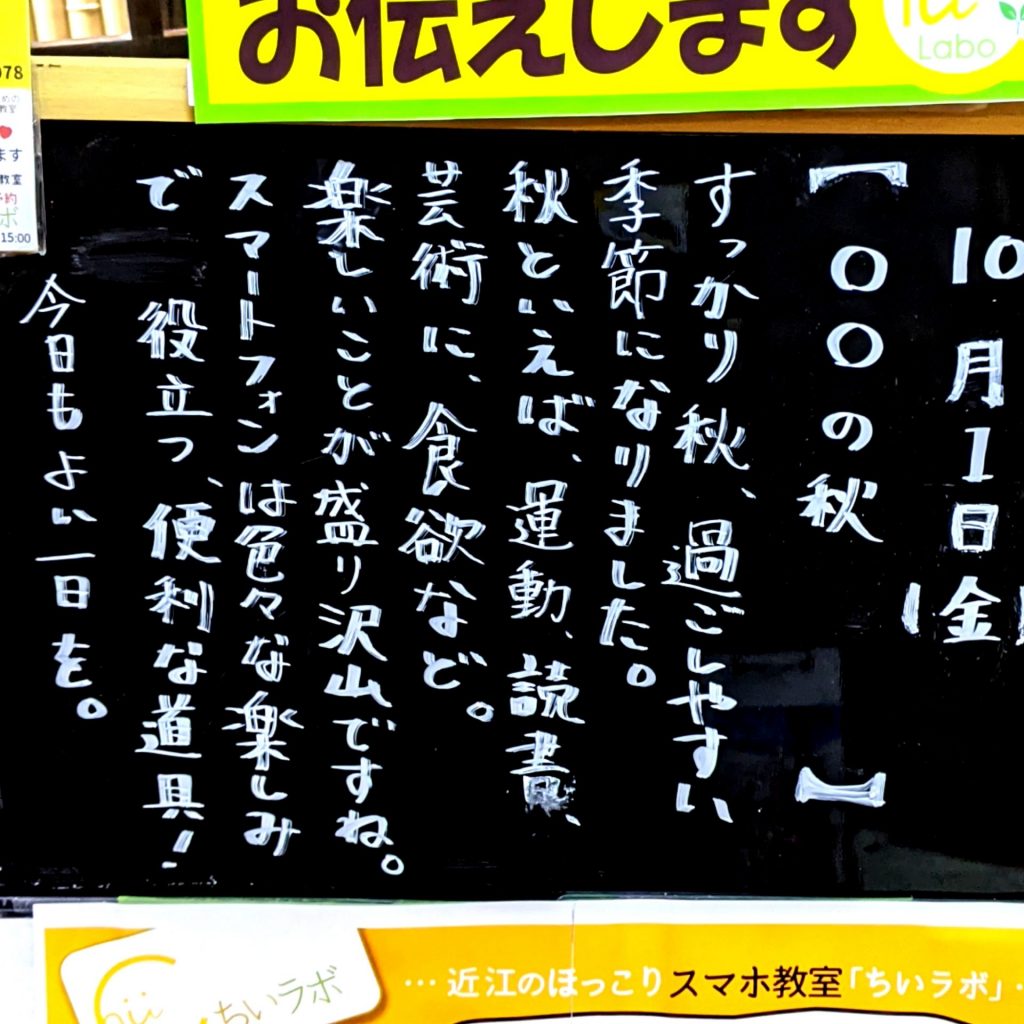 お伝えします
Labo
078
教室
ます
教室
予約
ボ
15:00
10月1日(金)
【 〇〇〇の秋 】
すっかり秋、過ごしやすい
季節になりました。
秋といえば、運動、読書、
芸術に、食欲など。
楽しいことが盛り沢山ですね。
スマートフォンは色々な楽しみ
で 役立つ、便利な道具!
今日もよい一日を。
ちいラボ
… 近江のほっこりスマホ教室「ちいラボ」…